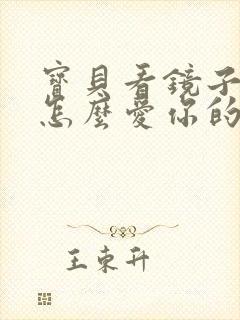 寶貝看鏡子
怎麼愛你的
王東升